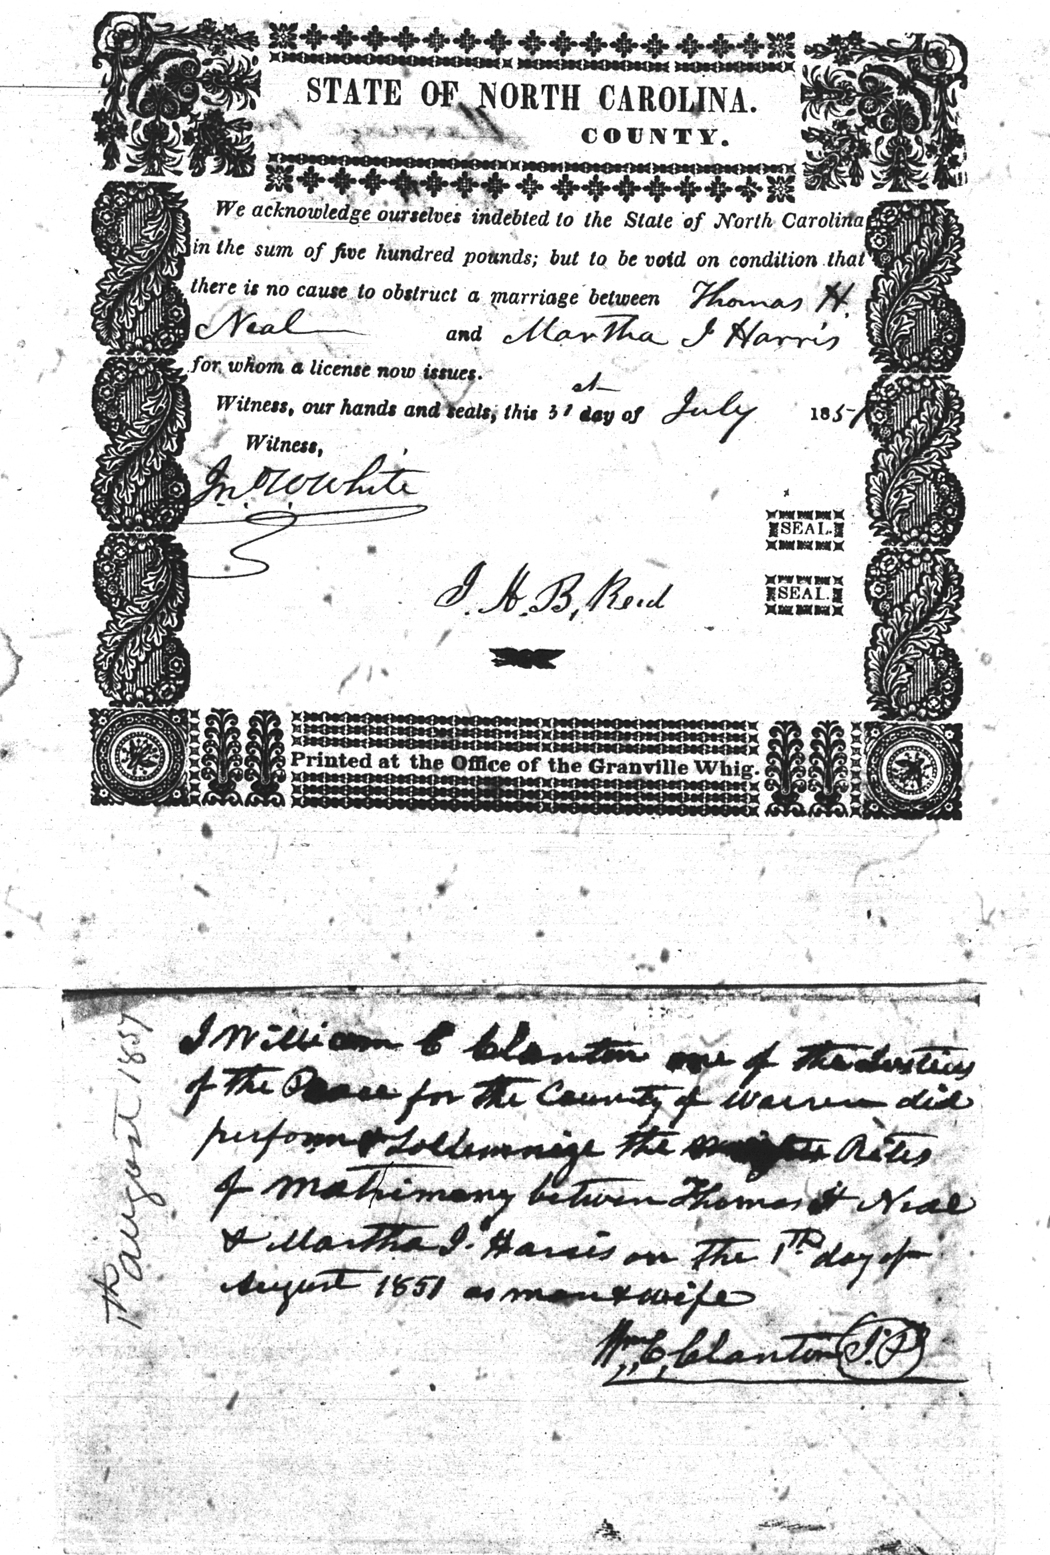 STATE OF NORTH CAROLINA.
COUNTY.
We acknowledge ourselves indebted to the State of North Carolina
in the sum of five hundred pounds; but to be void on condition that
there is no cause to obstruct a marriage between Thomas H.
Neal and Martha J Harris
for whom a license now issues.
Witness, our hands and seals, this 31st day of July 1851
Witness,
Jno. W. White
SEAL.
J. H. B. Reid
SEAL.
Printed at the Office of the Granville Whig.
1th August 1851
I William C Clanton one of the Justices
of the Peace for the County of Warren did
perform & Sollemnize the Rites
of Matrimony between Thomas H Neal
& Martha J. Harris on the 1th day of
August 1851 as man & wife
Wm. C. Clanton J.P.